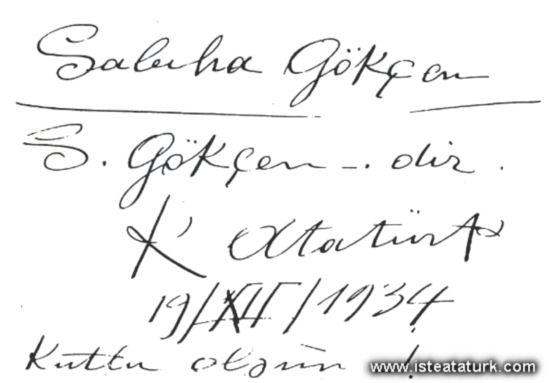 Sabiha Gökçen
S. Gökçen -. dir.
K. Atatürk
19/XII/1934
Kutlu olsun !
www.isteataturk.com